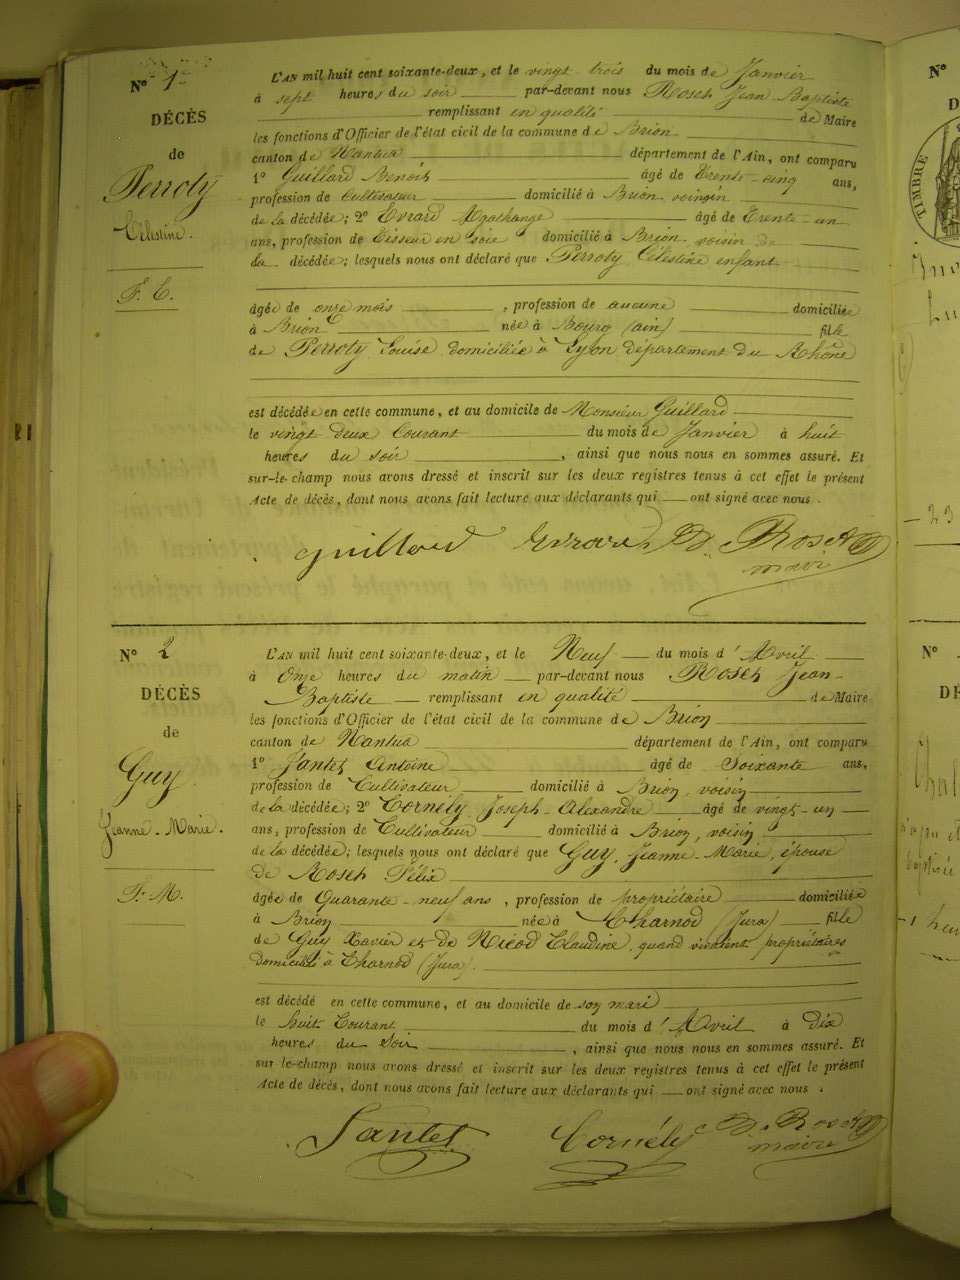 N° 1er
DÉCÈS
de
Perroty
Célestine.
F. C.
L'AN mil huit cent soixante-deux, et le vingt-trois du mois de Janvier
à sept heures du soir par-devant nous Roset Jean-Baptiste
remplissant en qualité de Maire
les fonctions d'Officier de l'état civil de la commune de Brion
canton de Nantua département de l'Ain, ont comparu
1° Guillard Benoit âgé de trente-cinq ans,
profession de Cultivateur domicilié à Brion voingin
de la décédée; 2° Evrard Agathange âgé de trente-un
ans, profession de tisseur en soie domicilié à Brion voisin de
la décédée; lesquels nous ont déclaré que Perroty Célestine enfant
âgée de onze mois, profession de aucune domiciliée
à Brion née à Bourg (ain) fille
de Perroty Louise domiciliée à Lyon département du Rhône
est décédée en cette commune, et au domicile de Monsieur Guillard
le vingt deux Courant du mois de Janvier à huit
heures du soir, ainsi que nous nous en sommes assuré. Et
sur-le-champ nous avons dressé et inscrit sur les deux registres tenus à cet effet le présent
Acte de décès, dont nous avons fait lecture aux déclarants qui ont signé avec nous.
guillard Evrard Roset
maire
N° 2
DÉCÈS
de
Guy
Jeanne-Marie.
F. M.
L'AN mil huit cent soixante-deux, et le Neuf du mois d'Avril
à Onze heures du matin par-devant nous Roset Jean-
Baptiste remplissant en qualité de Maire
les fonctions d'Officier de l'état civil de la commune de Brion
canton de Nantua département de l'Ain, ont comparu
1° Jantet Antoine âgé de Soixante ans,
profession de Cultivateur domicilié à Brion, voisin
de la décédée; 2° Cornély Joseph-Alexandre âgé de vingt-un
ans, profession de Cultivateur domicilié à Brion, voisin
de la décédée; lesquels nous ont déclaré que Guy, Jeanne-Marie, épouse
de Roset Félix
âgée de Quarante-neuf ans, profession de propriétaire domiciliée
à Brion née à Charnod (Jura) fille
de Guy Xavier et de Nicod Claudine, quand vivaient propriétaires
domicilié à Charnod (Jura).
est décédé en cette commune, et au domicile de son mari
le huit Courant du mois d'Avril à Dix
heures du Soir, ainsi que nous nous en sommes assuré. Et
sur le-champ nous avons dressé et inscrit sur les deux registres tenus à cet effet le présent
Acte de décès, dont nous avons fait lecture aux déclarants qui ont signé avec nous.
Jantet Cornély Roset
maire
N°
TIMBRE
23
N°